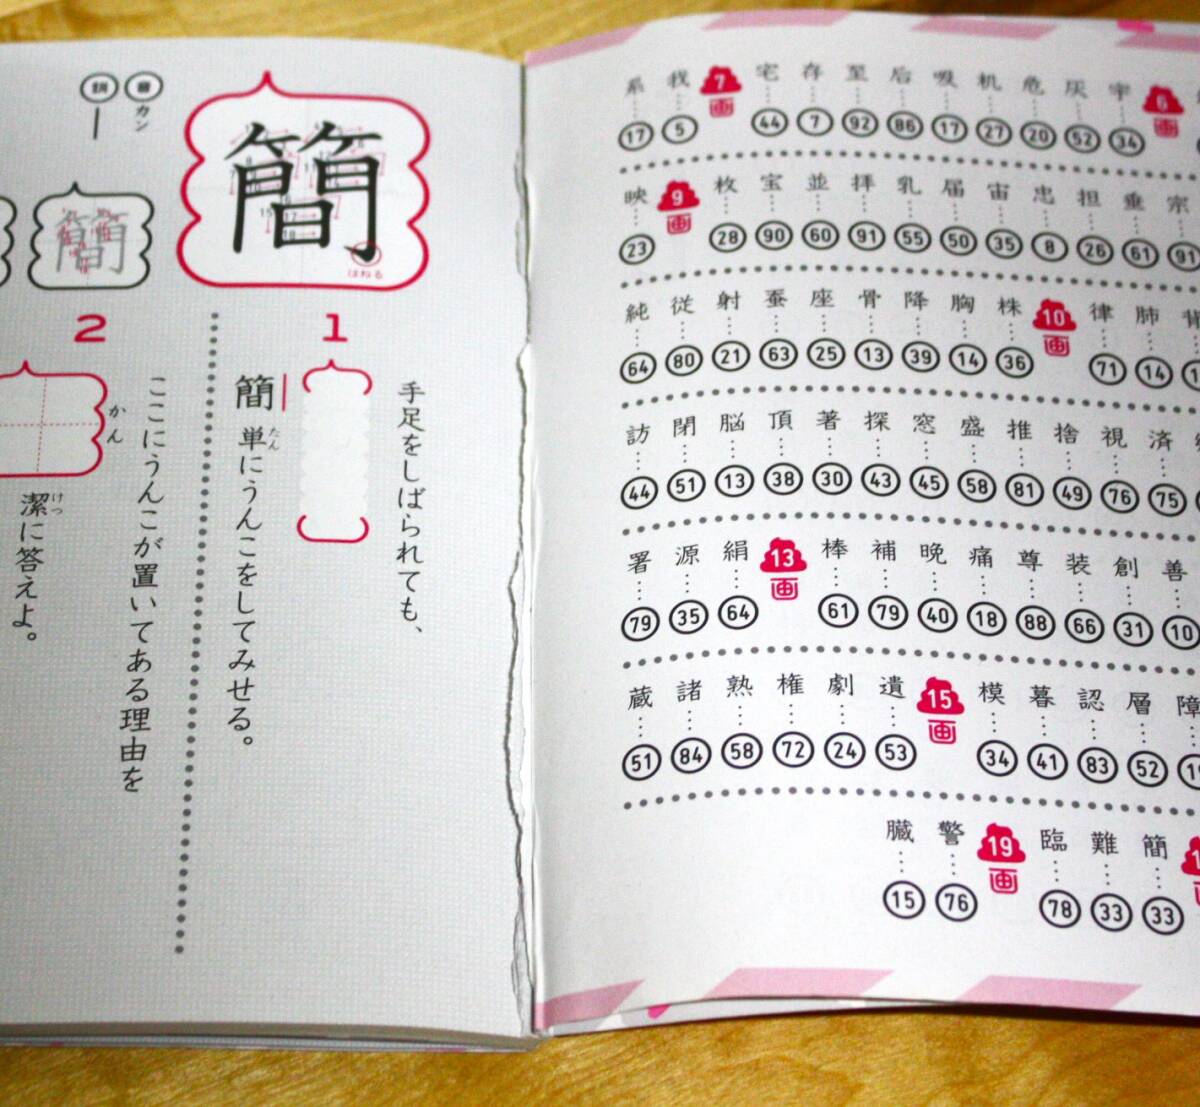 6画 宇…34 灰…52 危…20 机…27 吸…17 后…86 至…92 存…7 宅…44 7画 我…5 系…17
宗…91 垂…61 担…26 忠…8 宙…35 届…50 乳…55 拝…91 並…60 宝…90 枚…28 9画 映…23
肺…14 律…71 10画 株…36 胸…14 降…39 骨…13 座…25 蚕…63 射…21 従…80 純…64
済…75 視…76 捨…49 推…81 盛…58 窓…45 探…43 著…30 頂…38 脳…13 閉…51 訪…44
善…10 創…31 装…66 尊…88 痛…18 晩…40 補…79 棒…61 13画 絹…64 源…35 署…79
障 層…52 認…83 暮…41 模…34 15画 遺…53 劇…24 権…72 熟…58 諸…84 蔵…51
簡…33 難…33 臨…78 19画 警…76 臓…15
簡
はねる
音 カン
訓 ―
簡
1
手足をしばられても、
簡単にうんこをしてみせる。
たん
2
ここにうんこが置いてある理由を
かん
潔に答えよ。
けつ